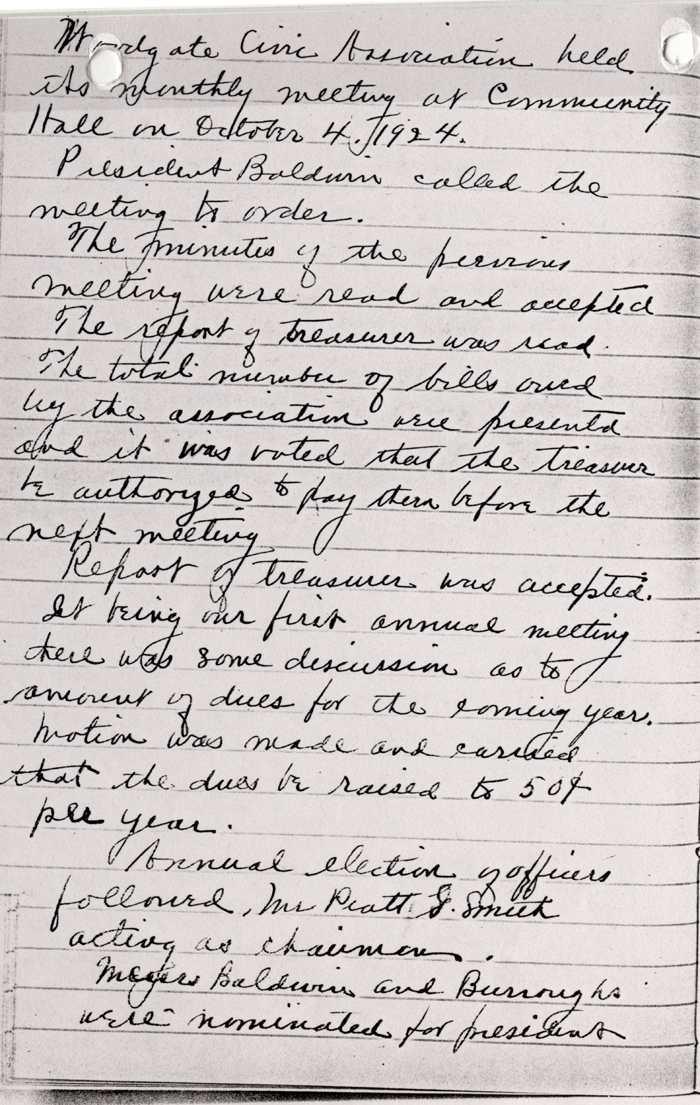 Woodgate Civic Association held
its monthly meeting at Community
Hall on October 4, 1924.
President Baldwin called the
meeting to order.
The minutes of the previous
meeting were read and accepted
The report of treasurer was read.
The total number of bills owed
by the association were presented
and it was voted that the treasurer
be authorized to pay them before the
next meeting
Report of treasurer was accepted.
It being our first annual meeting
there was some discussion as to
amount of dues for the coming year.
Motion was made and carried
that the dues be raised to 50¢
per year.
Annual election of officers
followed, Mr Pratt S. Smith
acting as chairman.
Baldwin and Burroughs
were nominated for president